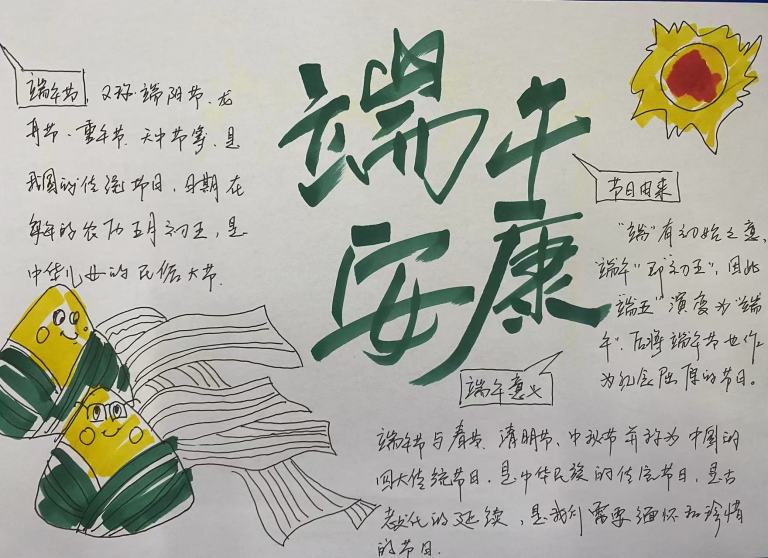 端午安康
端午节,又称端阳节、龙
舟节、重午节、天中节等,是
我国的传统节日,日期在
每年的农历五月初五,是
中华儿女的民俗大节.
节日由来
"端"有初始之意,
"端午"即"初五",因此
"端五"演变为"端
午".后将端午节也作
为纪念屈原的节日。
端午意义
端午节与春节、清明节、中秋节并称为中国的
四大传统节日,是中华民族的传统节日,是古
老文化的延续,是我们需要缅怀和珍惜
的节日.